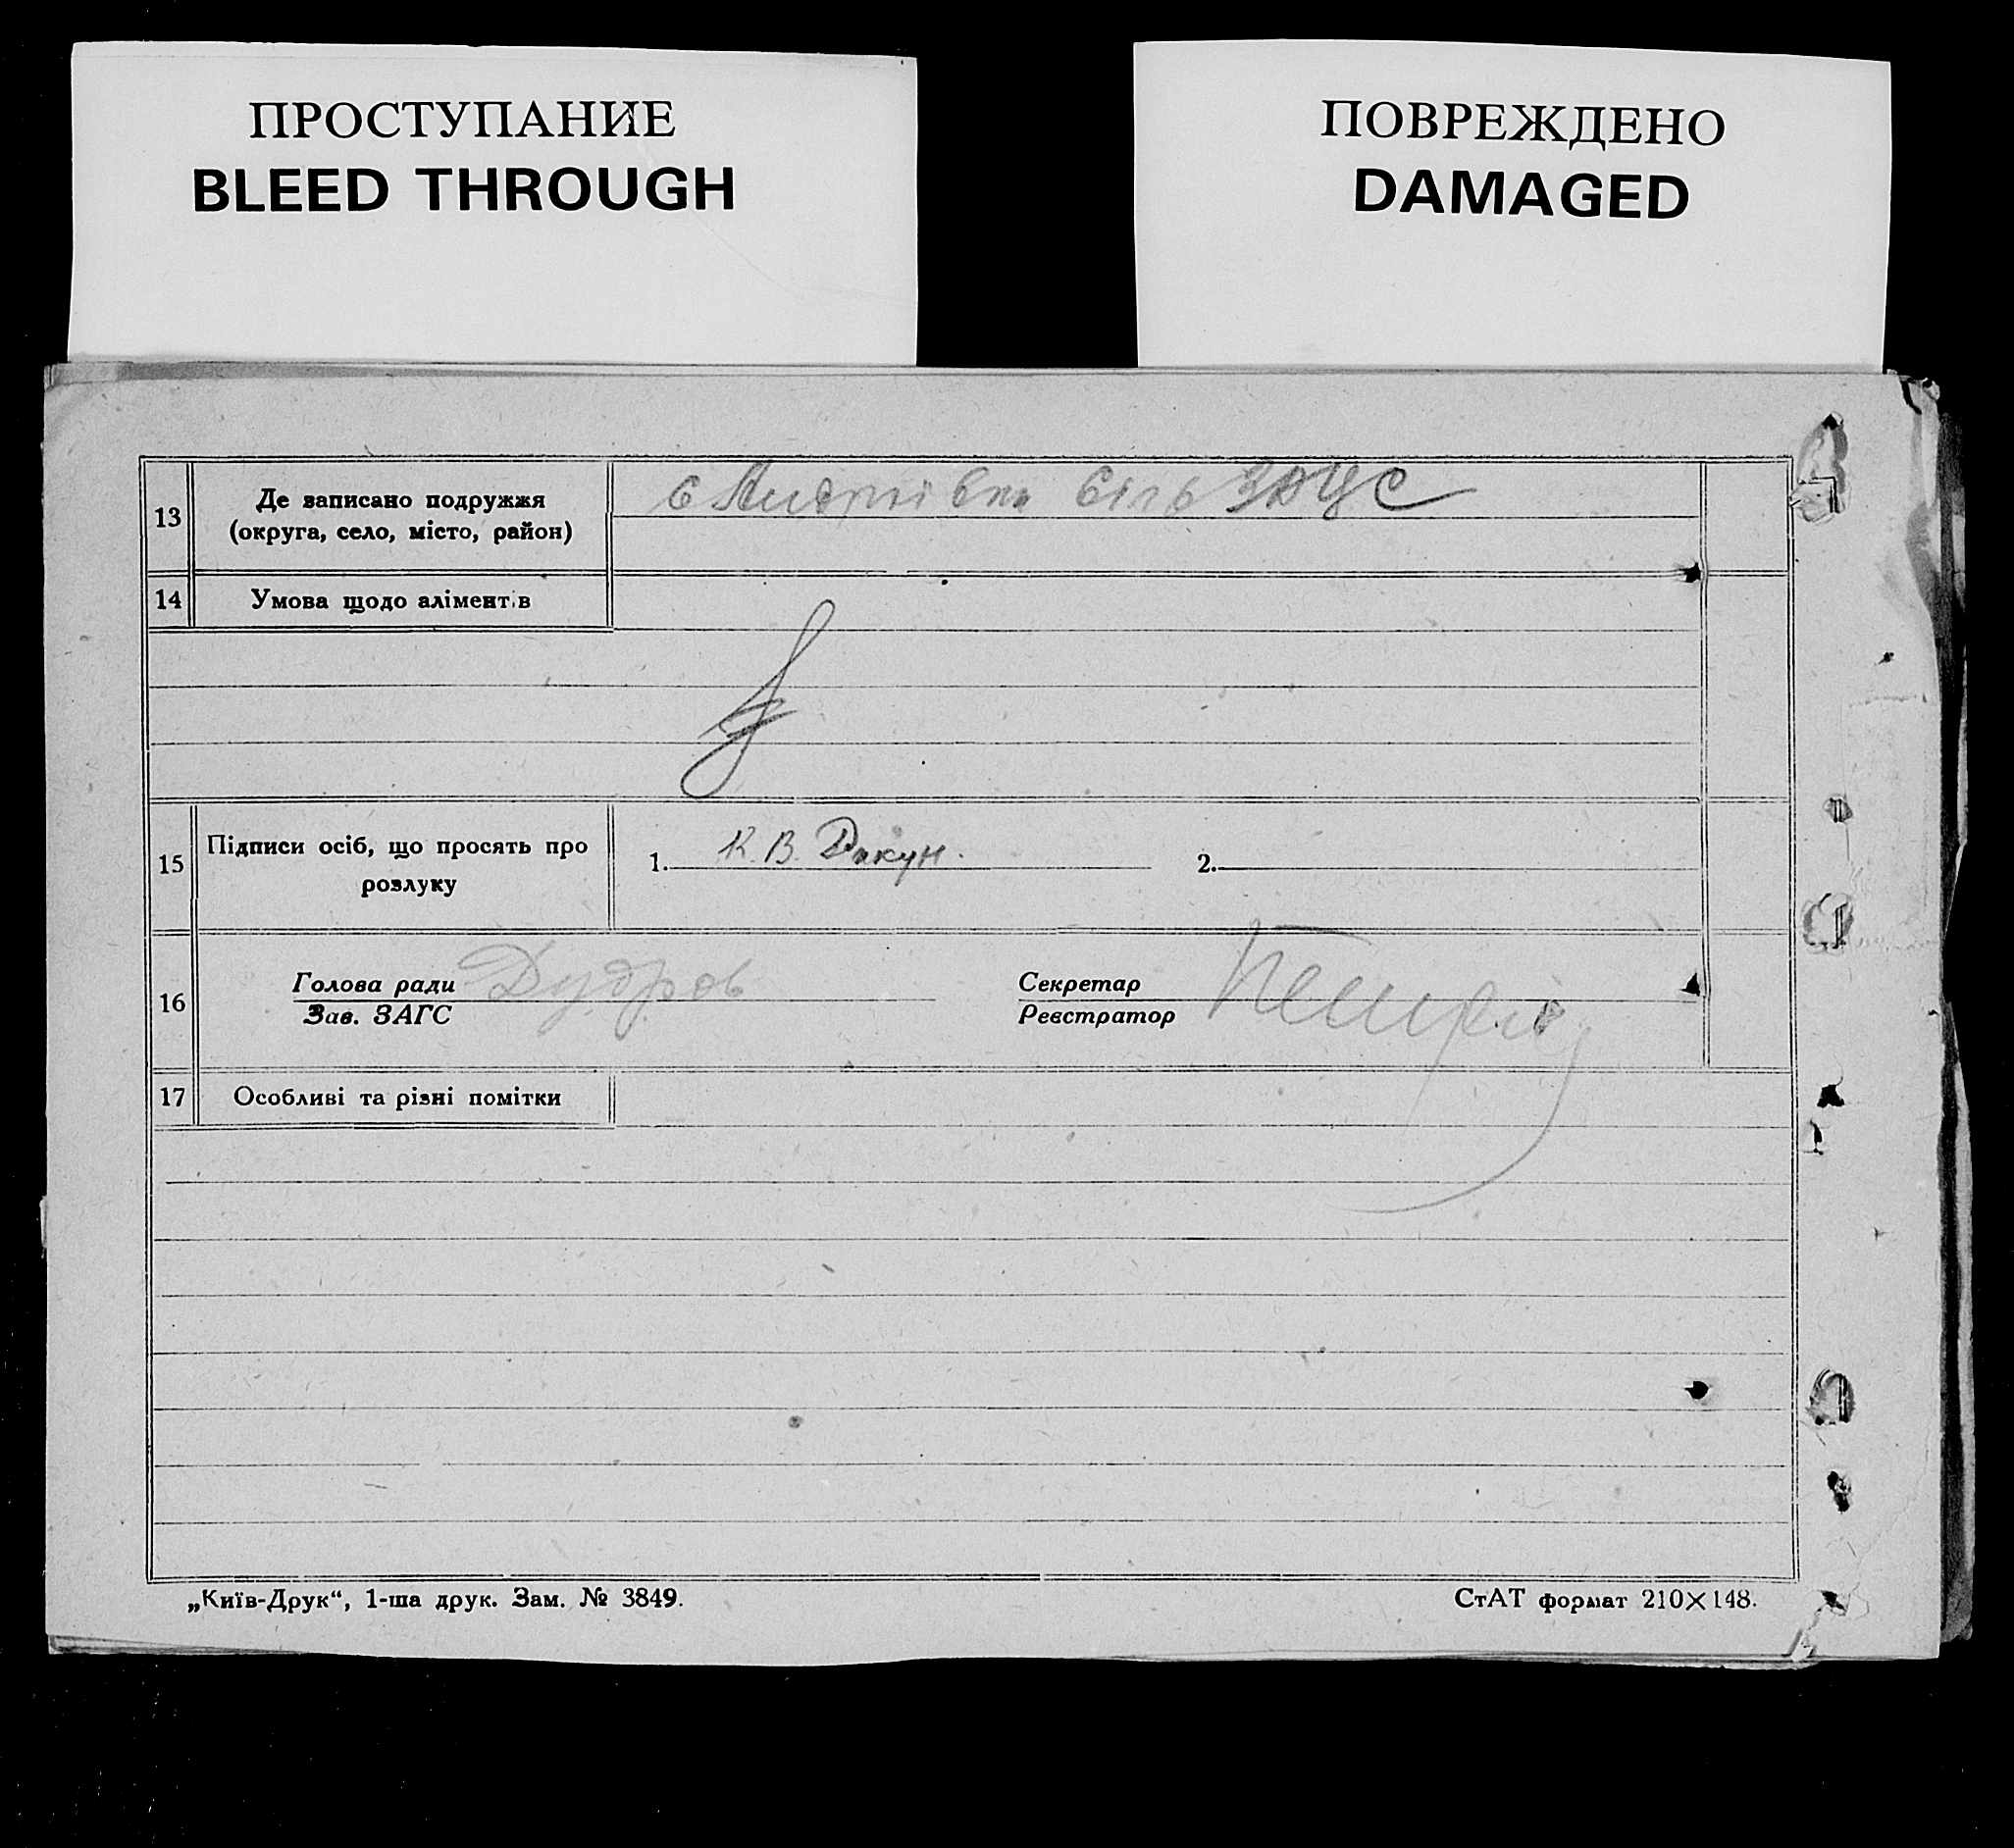 ПРОСТУПАНИЕ
BLEED THROUGH
ПОВРЕЖДЕНО
DAMAGED
13
Де записано подружжя
(округа, село, місто, район)
с Андріївка
14
Умова щодо аліментів
15
Підписи осіб, що просять про
розлуку
1. К. В. Дикун. 2.
16
Голова ради
Зав. ЗАГС
Секретар
Реєстратор
17
Особливі та різні помітки
„Київ-Друк“, 1-ша друк. Зам. № 3849.
СтАТ формат 210×148.